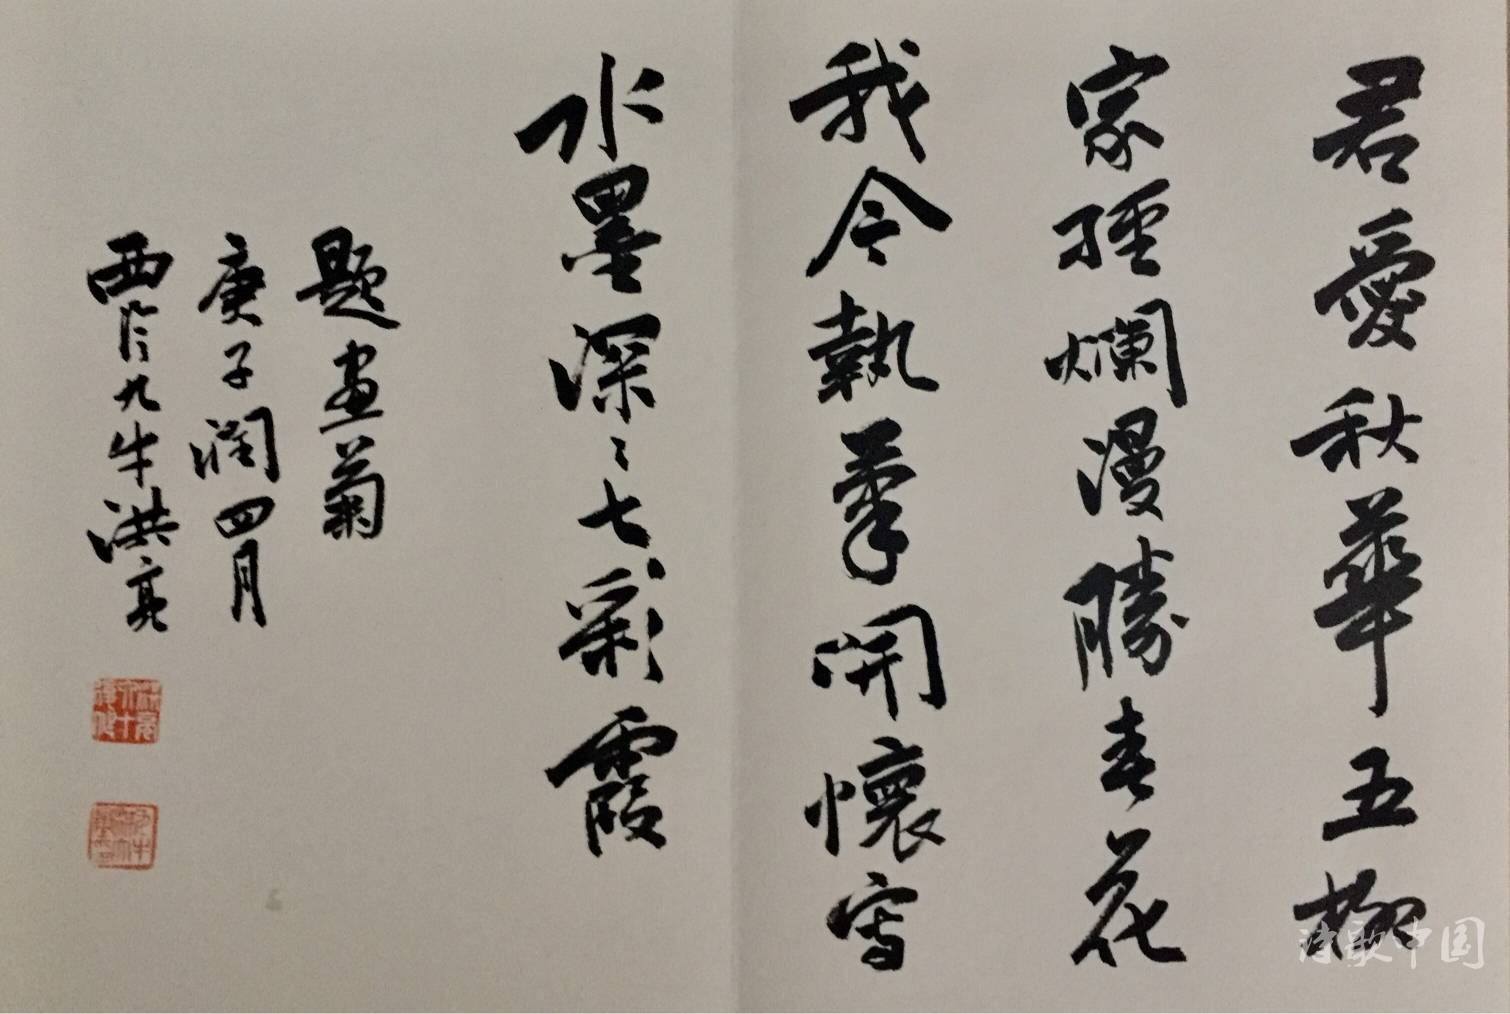 君愛秋華五柳
家爛漫勝春花
我今執筆開懷寫
水墨深〻七彩霞
題畫菊
庚子潤四月
西泠九牛洪亮
诗歌中国